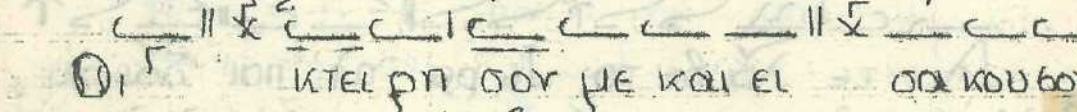 Οι κτει ρη σον με και ει σα κουσο